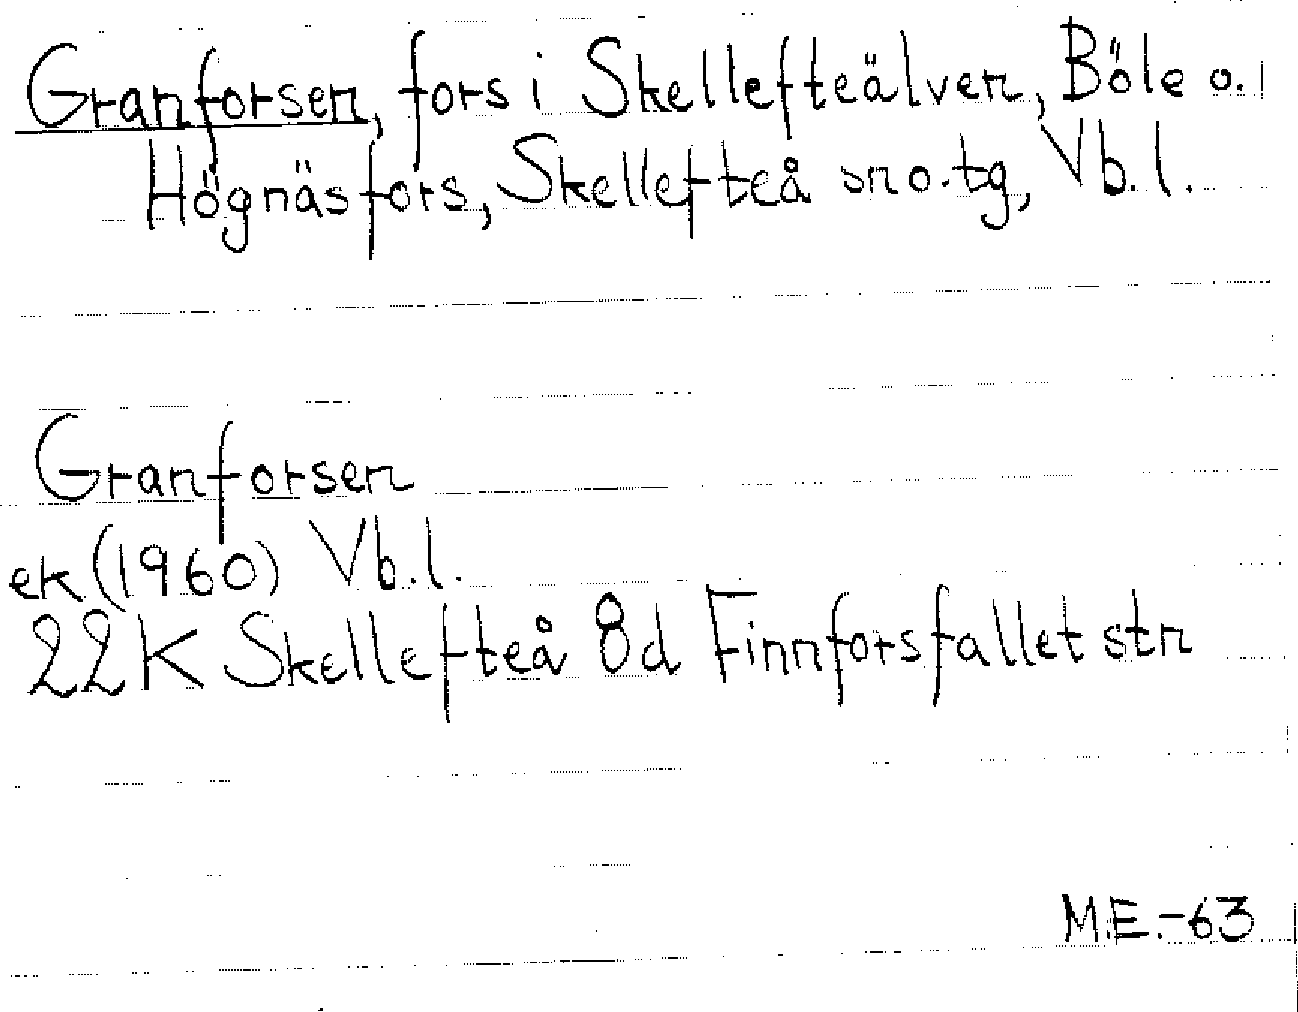 Granforsen, fors i Skellefteälven, Böle o.
Högnäsfors, Skellefteå sn o. tg, Vb. l.
Granforsen
ek (1960) Vb. l.
22K Skellefteå 8d Finnforsfallet str
M.E.-63